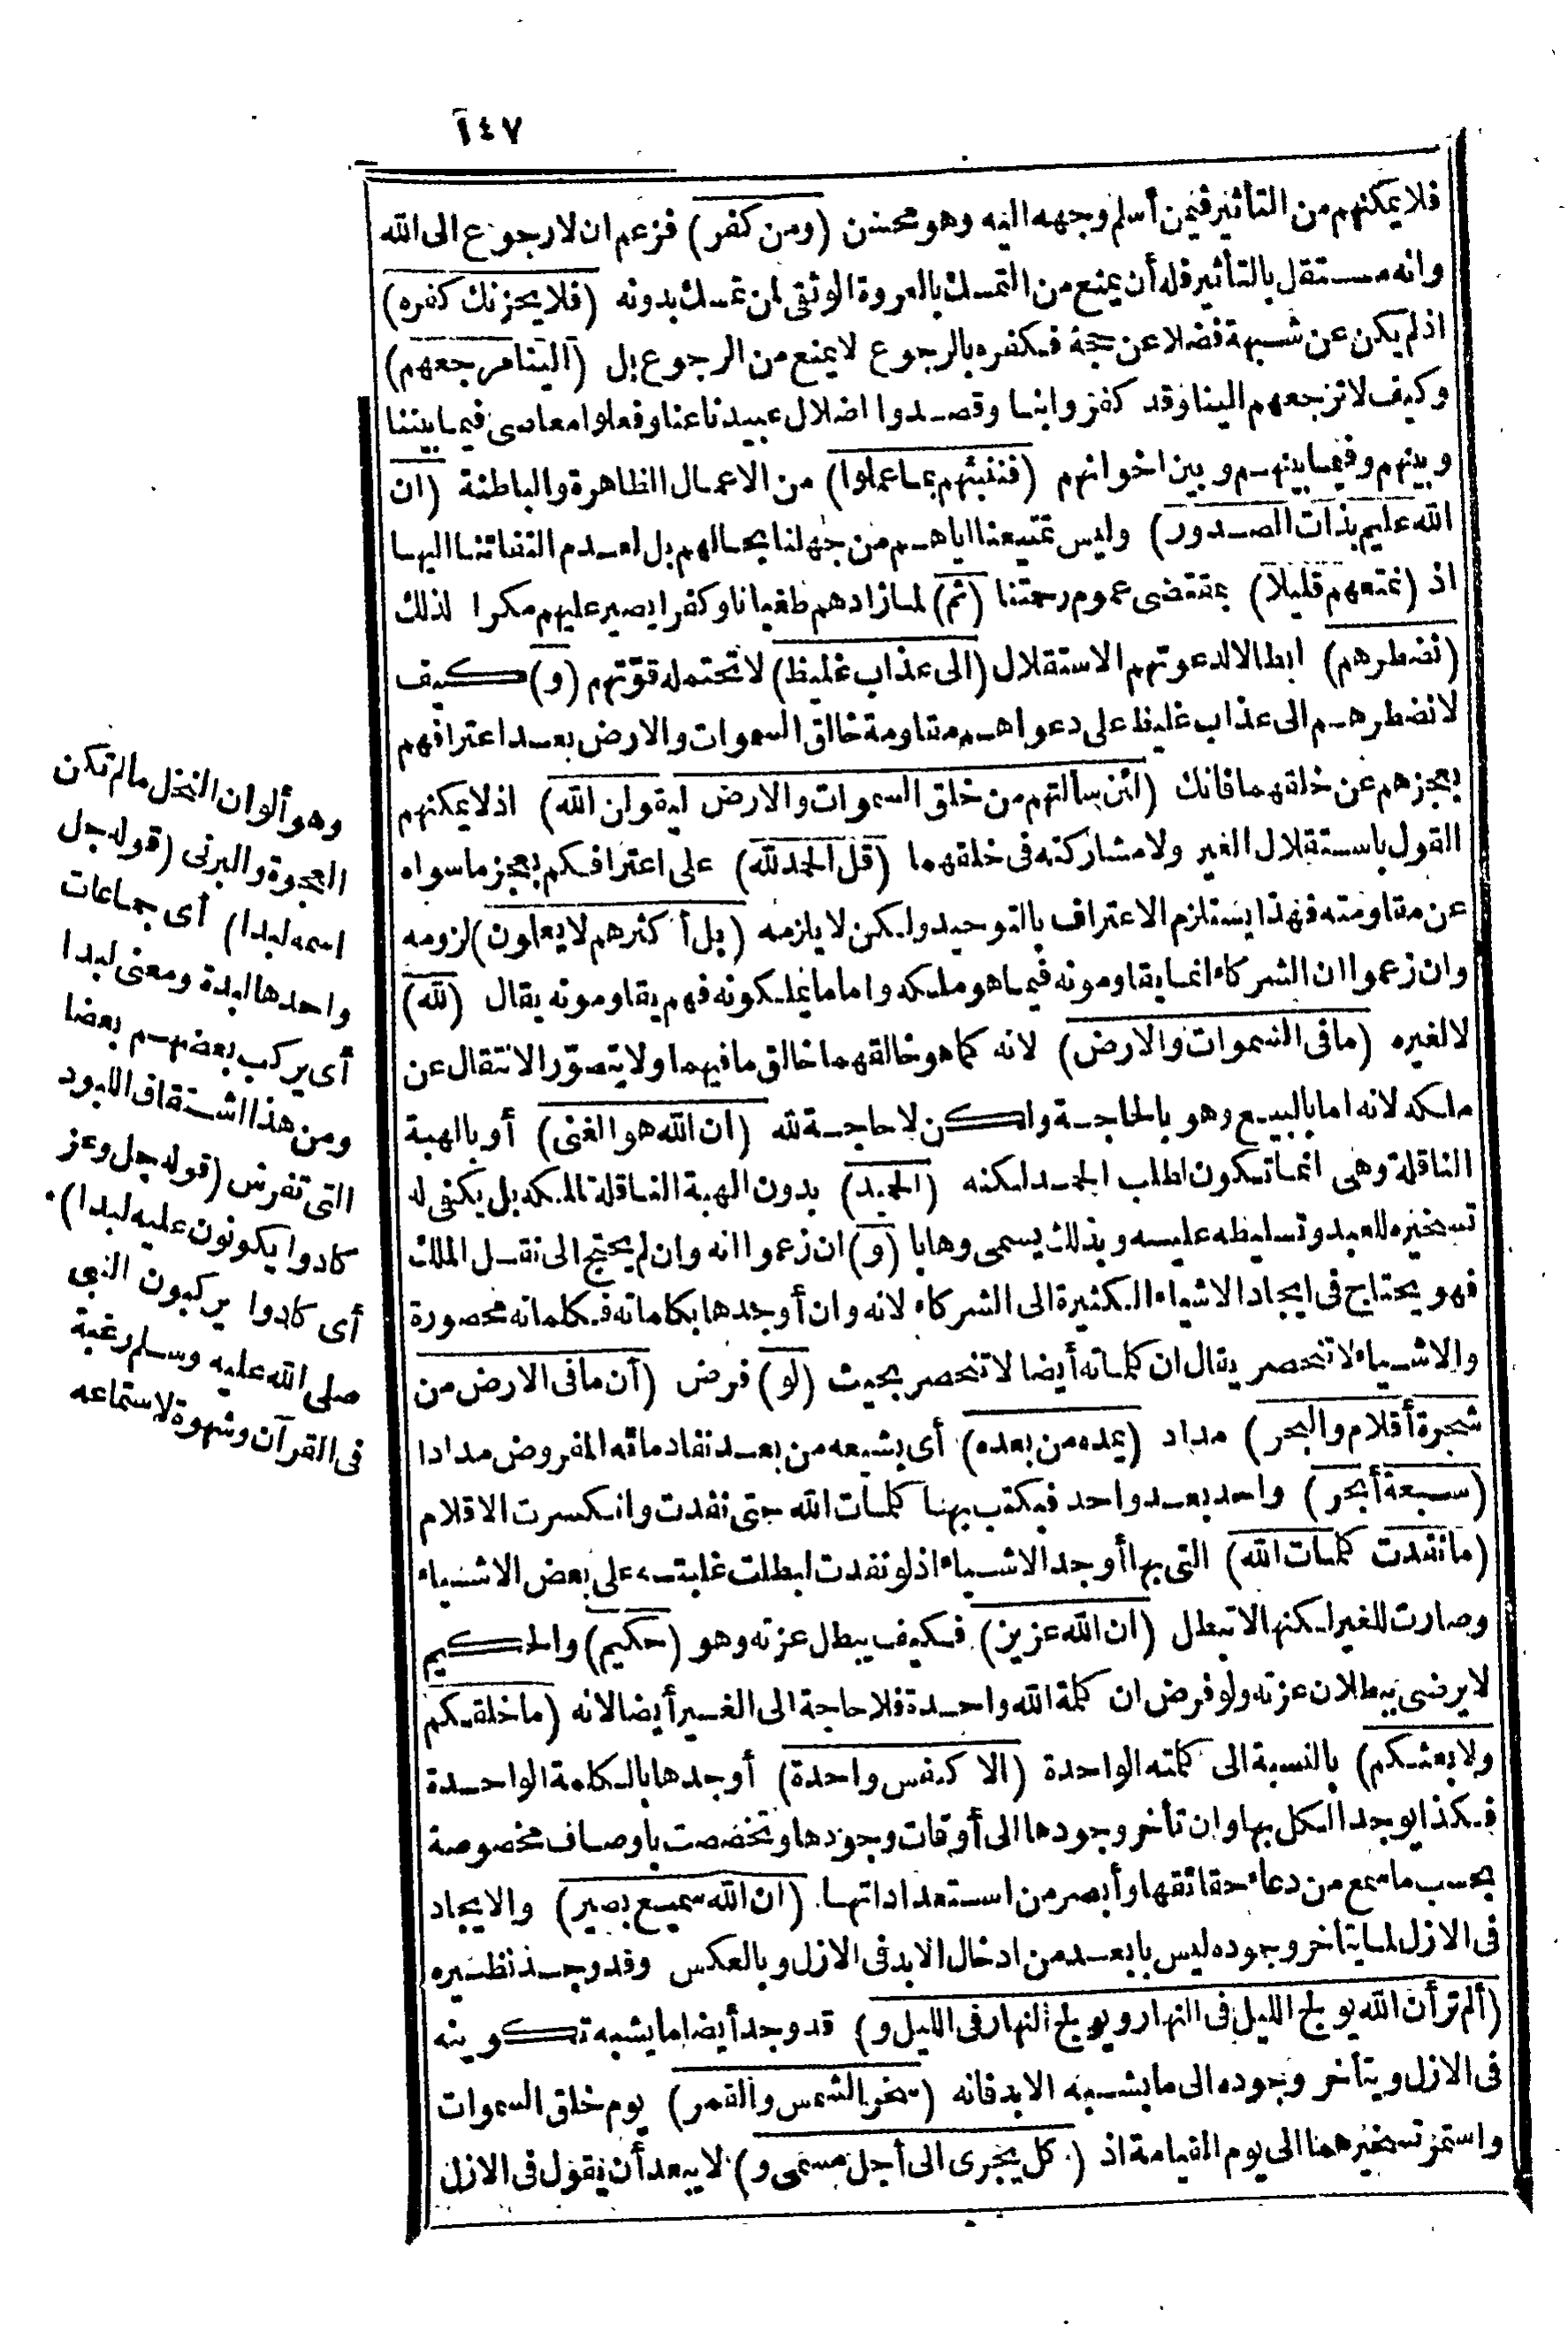 ١٤٧
فلا يمكنهم من التأثير فيمن أسلم وجهه اليه وهو محسن (ومن كفر) فزعم ان لا رجوع الى الله
وانه مستقل بالتأثير فله أن يمنع من التمسك بالعروة الوثقى لمن تمسك بدونه (فلا يحزنك كفره)
اذ لم يكن عن شبهة فضلا عن حجة فكفره بالرجوع لا يمنع من الرجوع بل (الينا مرجعهم)
وكيف لا نرجعهم الينا وقد كفروا بنا وقصدوا اضلال عبيدنا عنا وفعلوا معاصى فيما بيننا
وبينهم وفيما بينهم وبين اخوانهم (فننبئهم بما عملوا) من الاعمال الظاهرة والباطنة (ان
الله عليم بذات الصدور) وليس تمتيعنا اياهم من جهلنا بحالهم بل لعدم التفاتنا اليها
اذ (نمتعهم قليلا) بمقتضى عموم رحمتنا (ثم) لما زادهم طغيانا وكفرا يصير عليهم مكرا لذلك
(نضطرهم) ابطالا لدعوتهم الاستقلال (الى عذاب غليظ) لا تحتمله قوّتهم (و) كيف
لا نضطرهم الى عذاب غليظ على دعواهم مقاومة خالق السموات والارض بعد اعترافهم
بعجزهم عن خلقهما فانك (لئن سألتهم من خلق السموات والارض ليقولن الله) اذ لا يمكنهم
القول باستقلال الغير ولا مشاركته فى خلقهما (قل الحمد لله) على اعترافكم بعجز ما سواه
عن مقاومته فهذا يستلزم الاعتراف بالتوحيد ولكن لا يلزمه (بل أكثرهم لا يعلمون) لزومه
وان زعموا ان الشركاء انما يقاومونه فيما هو ملكه واما ما يملكونه فهم يقاومونه يقال (لله)
لا لغيره (ما فى السموات والارض) لانه كما هو خالقهما خالق ما فيهما ولا يتصوّر الانتقال عن
ملكه لانه اما بالبيع وهو بالحاجة ولكن لا حاجة لله (ان الله هو الغنى) أو بالهبة
الناقلة وهى انما تكون لطلب الحمد لكنه (الحميد) بدون الهبة الناقلة للملكه بل يكفى له
تسخيره للعبد وتسليطه عليه وبذلك يسمى وهابا (و) ان زعموا انه وان لم يحتج الى نقل الملك
فهو يحتاج فى ايجاد الاشياء الكثيرة الى الشركاء لانه وان أوجدها بكلماته فكلماته محصورة
والاشياء لا تنحصر يقال ان كلماته أيضا لا تنحصر بحيث (لو) فرض (أن ما فى الارض من
شجرة أقلام والبحر) مداد (يمده من بعده) أى يشيعه من بعد نفاد مائه المفروض مدادا
(سبعة أبحر) واحد بعد واحد فيكتب بها كلمات الله حتى نفدت وانكسرت الاقلام
(ما نفدت كلمات الله) التى بها أوجد الاشياء اذ لو نفدت لبطلت غلبته على بعض الاشياء
وصارت للغير لكنها لا تبطل (ان الله عزيز) فكيف يبطل عزته وهو (حكيم) والحكيم
لا يرضى ببطلان عزته ولو فرض ان كلمة الله واحدة فلا حاجة الى الغير أيضا لانه (ما خلقكم
ولا بعثكم) بالنسبة الى كلمته الواحدة (الا كنفس واحدة) أوجدها بالكلمة الواحدة
فكذا يوجد الكل بها وان تأخر وجودها الى أوقات وجودها وتخصصت باوصاف مخصوصة
بحسب ما سمع من دعاء حقائقها وأبصر من استعداداتها (ان الله سميع بصير) والايجاد
فى الازل لما يتأخر وجوده ليس بابعد من ادخال الابد فى الازل وبالعكس وقد وجد نظيره
(ألم تر أن الله يولج الليل فى النهار ويولج النهار فى الليل و) قد وجد أيضا ما يشبه تكوينه
فى الازل ويتأخر وجوده الى ما يشبه الابد فانه (سخر الشمس والقمر) يوم خلق السموات
واستمر تسخيرهما الى يوم القيامة اذ (كل يجرى الى أجل مسمى و) لا يبعد أن نقول فى الازل
وهو ألوان النخل ما لم تكن
العجوة والبرنى (قوله جل
اسمه لبدا) أى جماعات
واحدها لبدة ومعنى لبدا
أى يركب بعضهم بعضا
ومن هذا اشتقاق اللبود
التى تفرش (قوله جل وعز
كادوا يكونون عليه لبدا)
أى كادوا يركبون النبى
صلى الله عليه وسلم رغبة
فى القرآن وشهوة لاستماعه